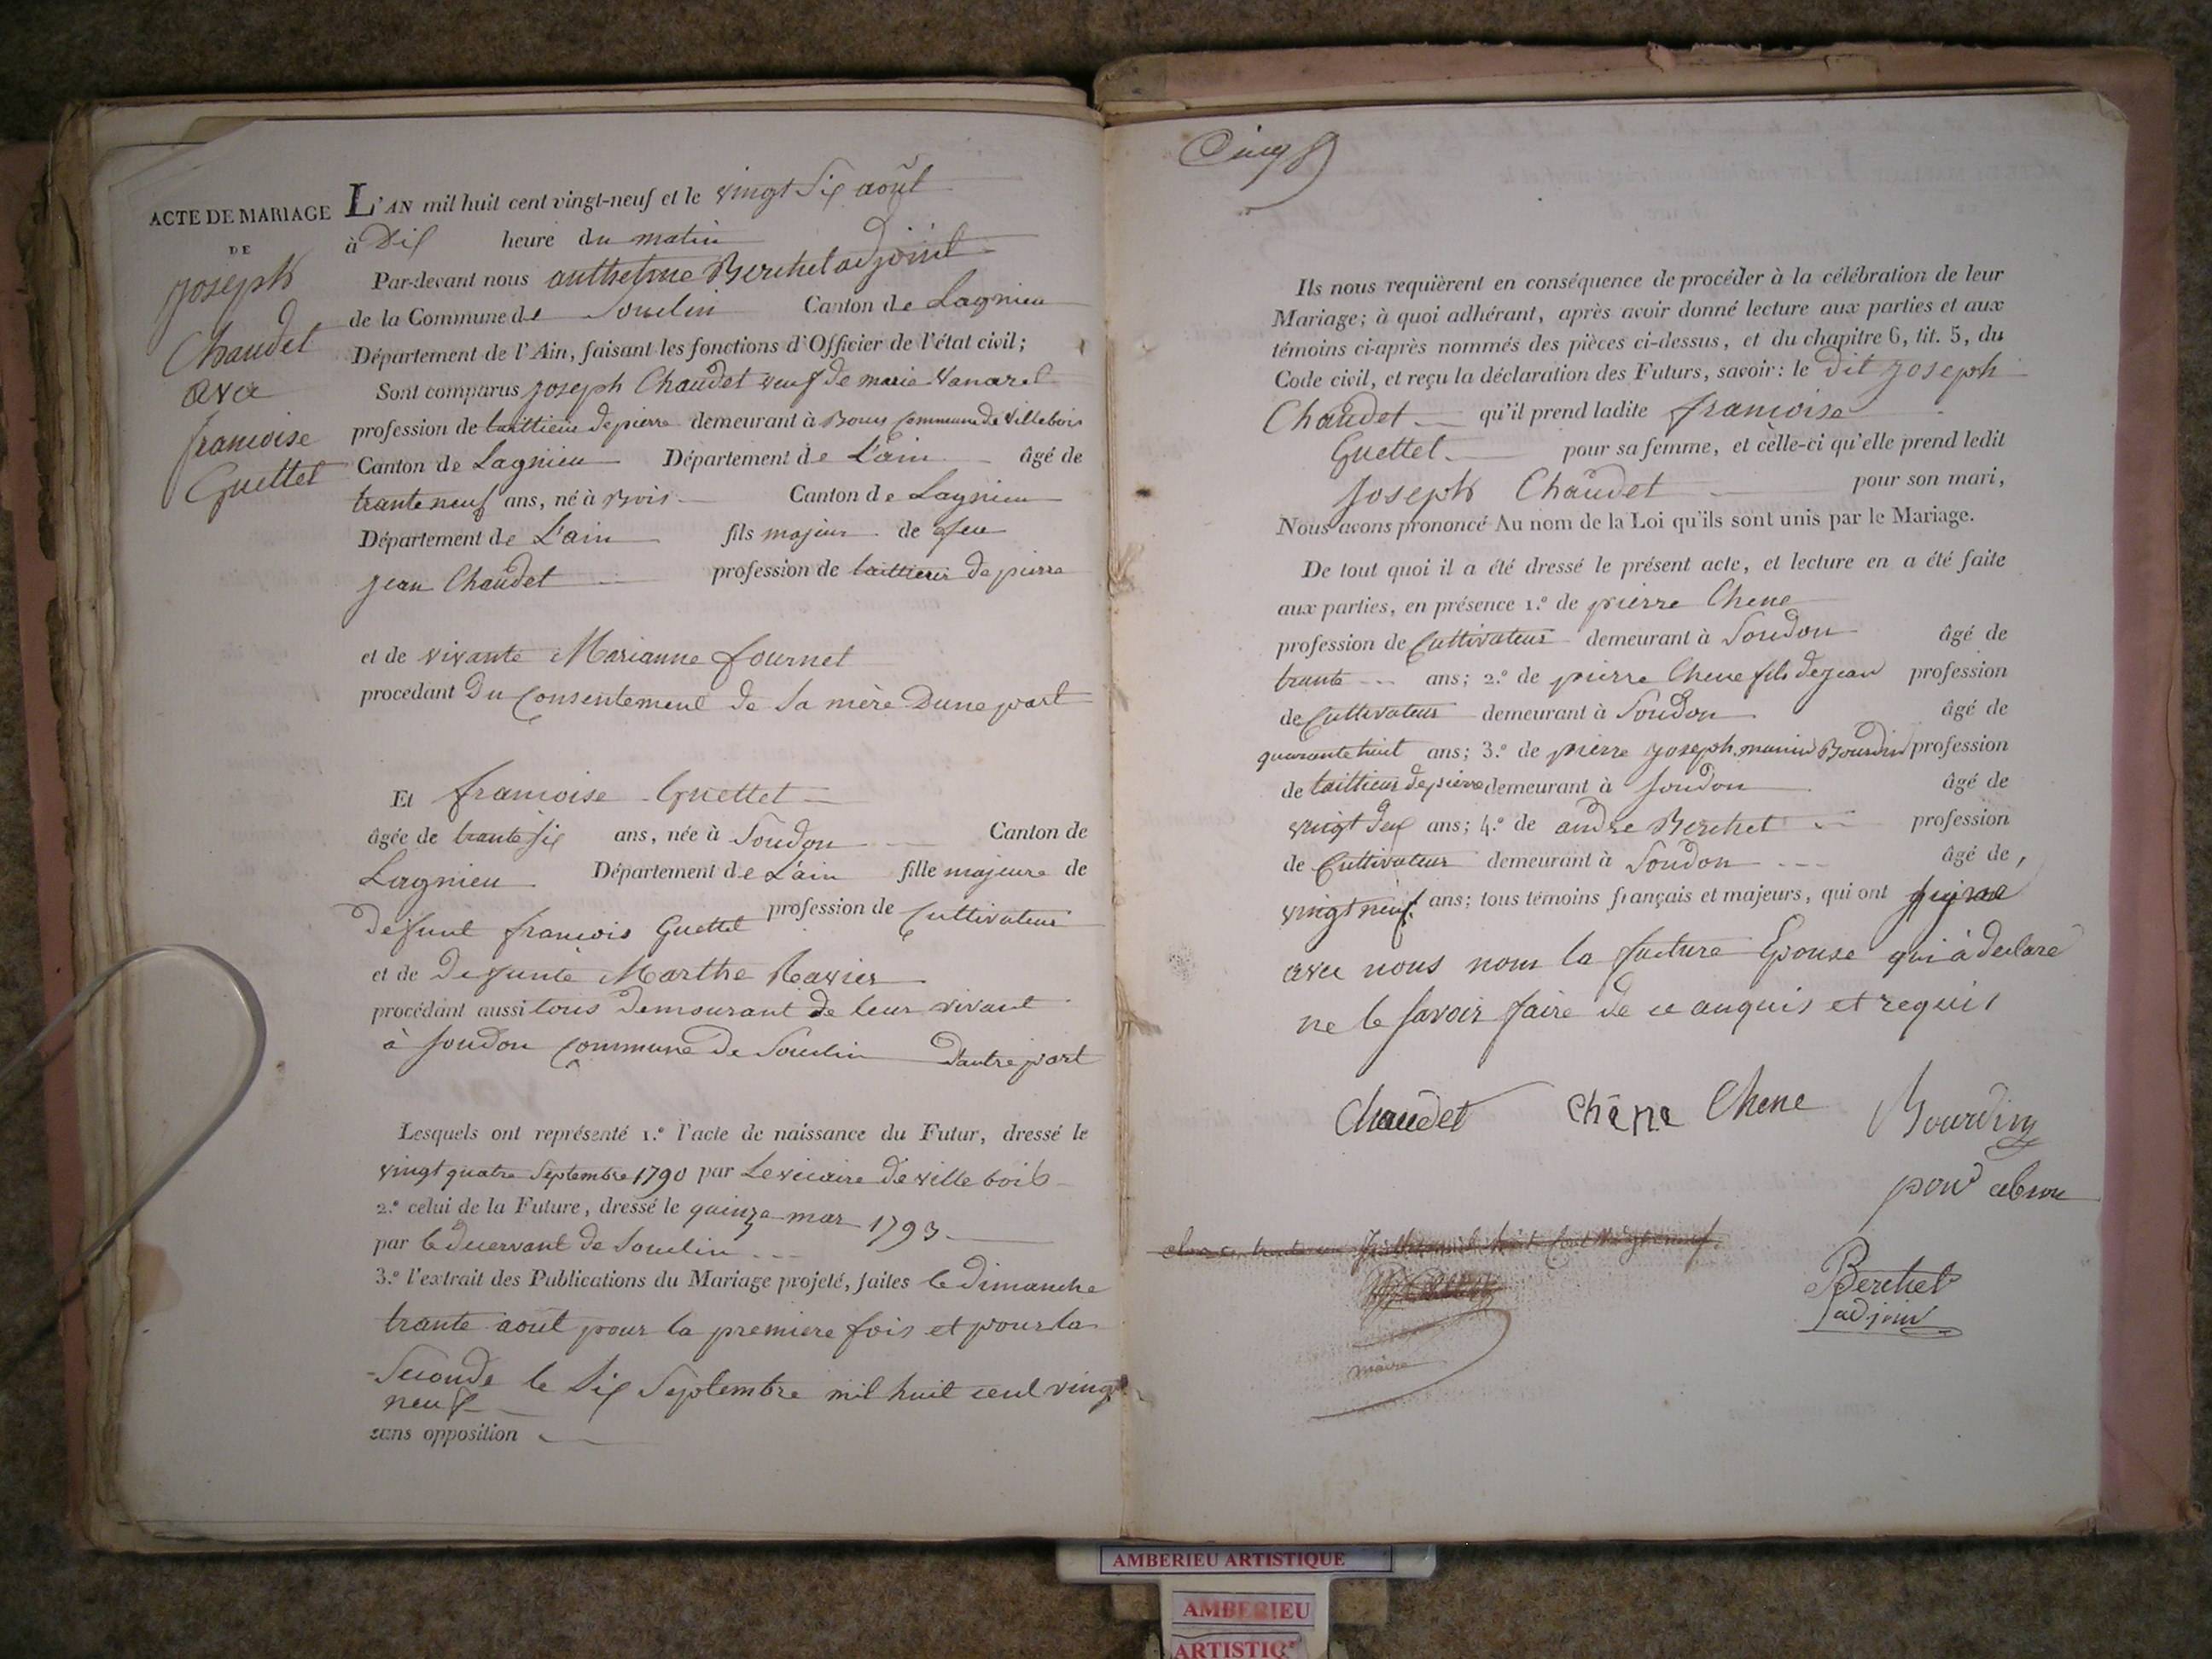 ACTE DE MARIAGE
DE
joseph
Chaudet
avec
francoise
Guettet
L'AN mil huit cent vingt-neuf et le vingt Six août
à Dix heure du matin
Par-devant nous anthelme Berchet adjoint
de la Commune de Souclin Canton de Lagnieu
Département de l'Ain, faisant les fonctions d'Officier de l'état civil;
Sont comparus joseph Chaudet veuf de marie
profession de taillieur de pierre demeurant à Bouis Commune de Villebois
Canton de Lagnieu Département de L'ain âgé de
trante neuf ans, né à Bois Canton de Lagnieu
Département de L'ain fils majeur de feu
jean Chaudet profession de taillieur de pierre
et de vivante Marianne fournet
procédant du Consentement de Sa mère Dune part
Et francoise Guettet
âgée de trante six ans, née à Soudon Canton de
Lagnieu Département de L'ain fille majeure de
defunt francois Guettet profession de Cultivateur
et de Defunte Marthe Ravier
procédant aussi tous Demeurant de leur vivant
à Soudon Commune de Souclin D'autre part
Lesquels ont représenté 1.º l'acte de naissance du Futur, dressé le
vingt quatre Septembre 1790 par Le vicaire de villebois
2.º celui de la Future, dressé le quinze mar 1793
par le decervant de Souclin
3.º l'extrait des Publications du Mariage projeté, faites le dimanche
trante août pour la premiere fois et pour la
Seconde le Six Septembre mil huit cent ving
neuf
sans opposition
Cinq
Ils nous requièrent en conséquence de procéder à la célébration de leur
Mariage; à quoi adhérant, après avoir donné lecture aux parties et aux
témoins ci-après nommés des pièces ci-dessus, et du chapitre 6, tit. 5, du
Code civil, et reçu la déclaration des Futurs, savoir: le dit joseph
Chaudet qu'il prend ladite francoise
Guettet pour sa femme, et celle-ci qu'elle prend ledit
joseph Chaudet pour son mari,
Nous avons prononcé Au nom de la Loi qu'ils sont unis par le Mariage.
De tout quoi il a été dressé le présent acte, et lecture en a été faite
aux parties, en présence 1.º de pierre Chene
profession de Cultivateur demeurant à Soudon âgé de
trante ans; 2.º de pierre Chene fils de jean profession
de Cultivateur demeurant à Soudon âgé de
quarante huit ans; 3.º de pierre joseph Bourdin profession
de taillieur de pierre demeurant à Soudon âgé de
vingt deux ans; 4.º de andre Berchet profession
de Cultivateur demeurant à Soudon âgé de
vingt neuf ans; tous témoins français et majeurs, qui ont
avec nous nom la future Epouse qui à declaré
ne le Savoir faire de ce anquis et requis
Chaudet Chêne Chene Bourdin
Berchet
adjoin
maire
AMBERIEU ARTISTIQUE
AMBERIEU
ARTISTIQ